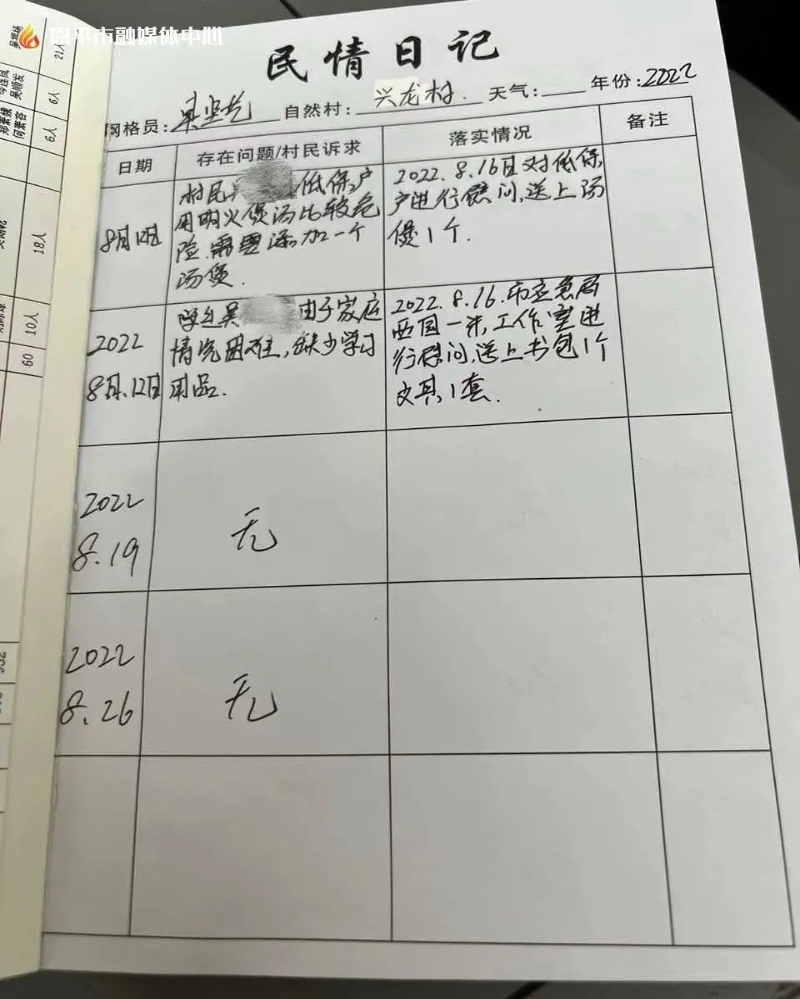 恩平市融媒体中心
民情日记
网格员: 自然村: 兴龙村. 天气: 年份:2022
日期 存在问题/村民诉求 落实情况 备注
8月12日
村民 低保户
用明火煲汤比较危
险.需要添加一个
汤煲.
2022.8.16日对低保
户进行慰问,送上汤
煲1个.
2022
8月.12日
吴 由于家庭
情况困难,缺少学习
用品.
2022.8.16.市应急局
工作室进
行慰问,送上书包1个
文具1套.
2022
8.19
无
2022
8.26
无
21人
6人
6人
18人
10人
60